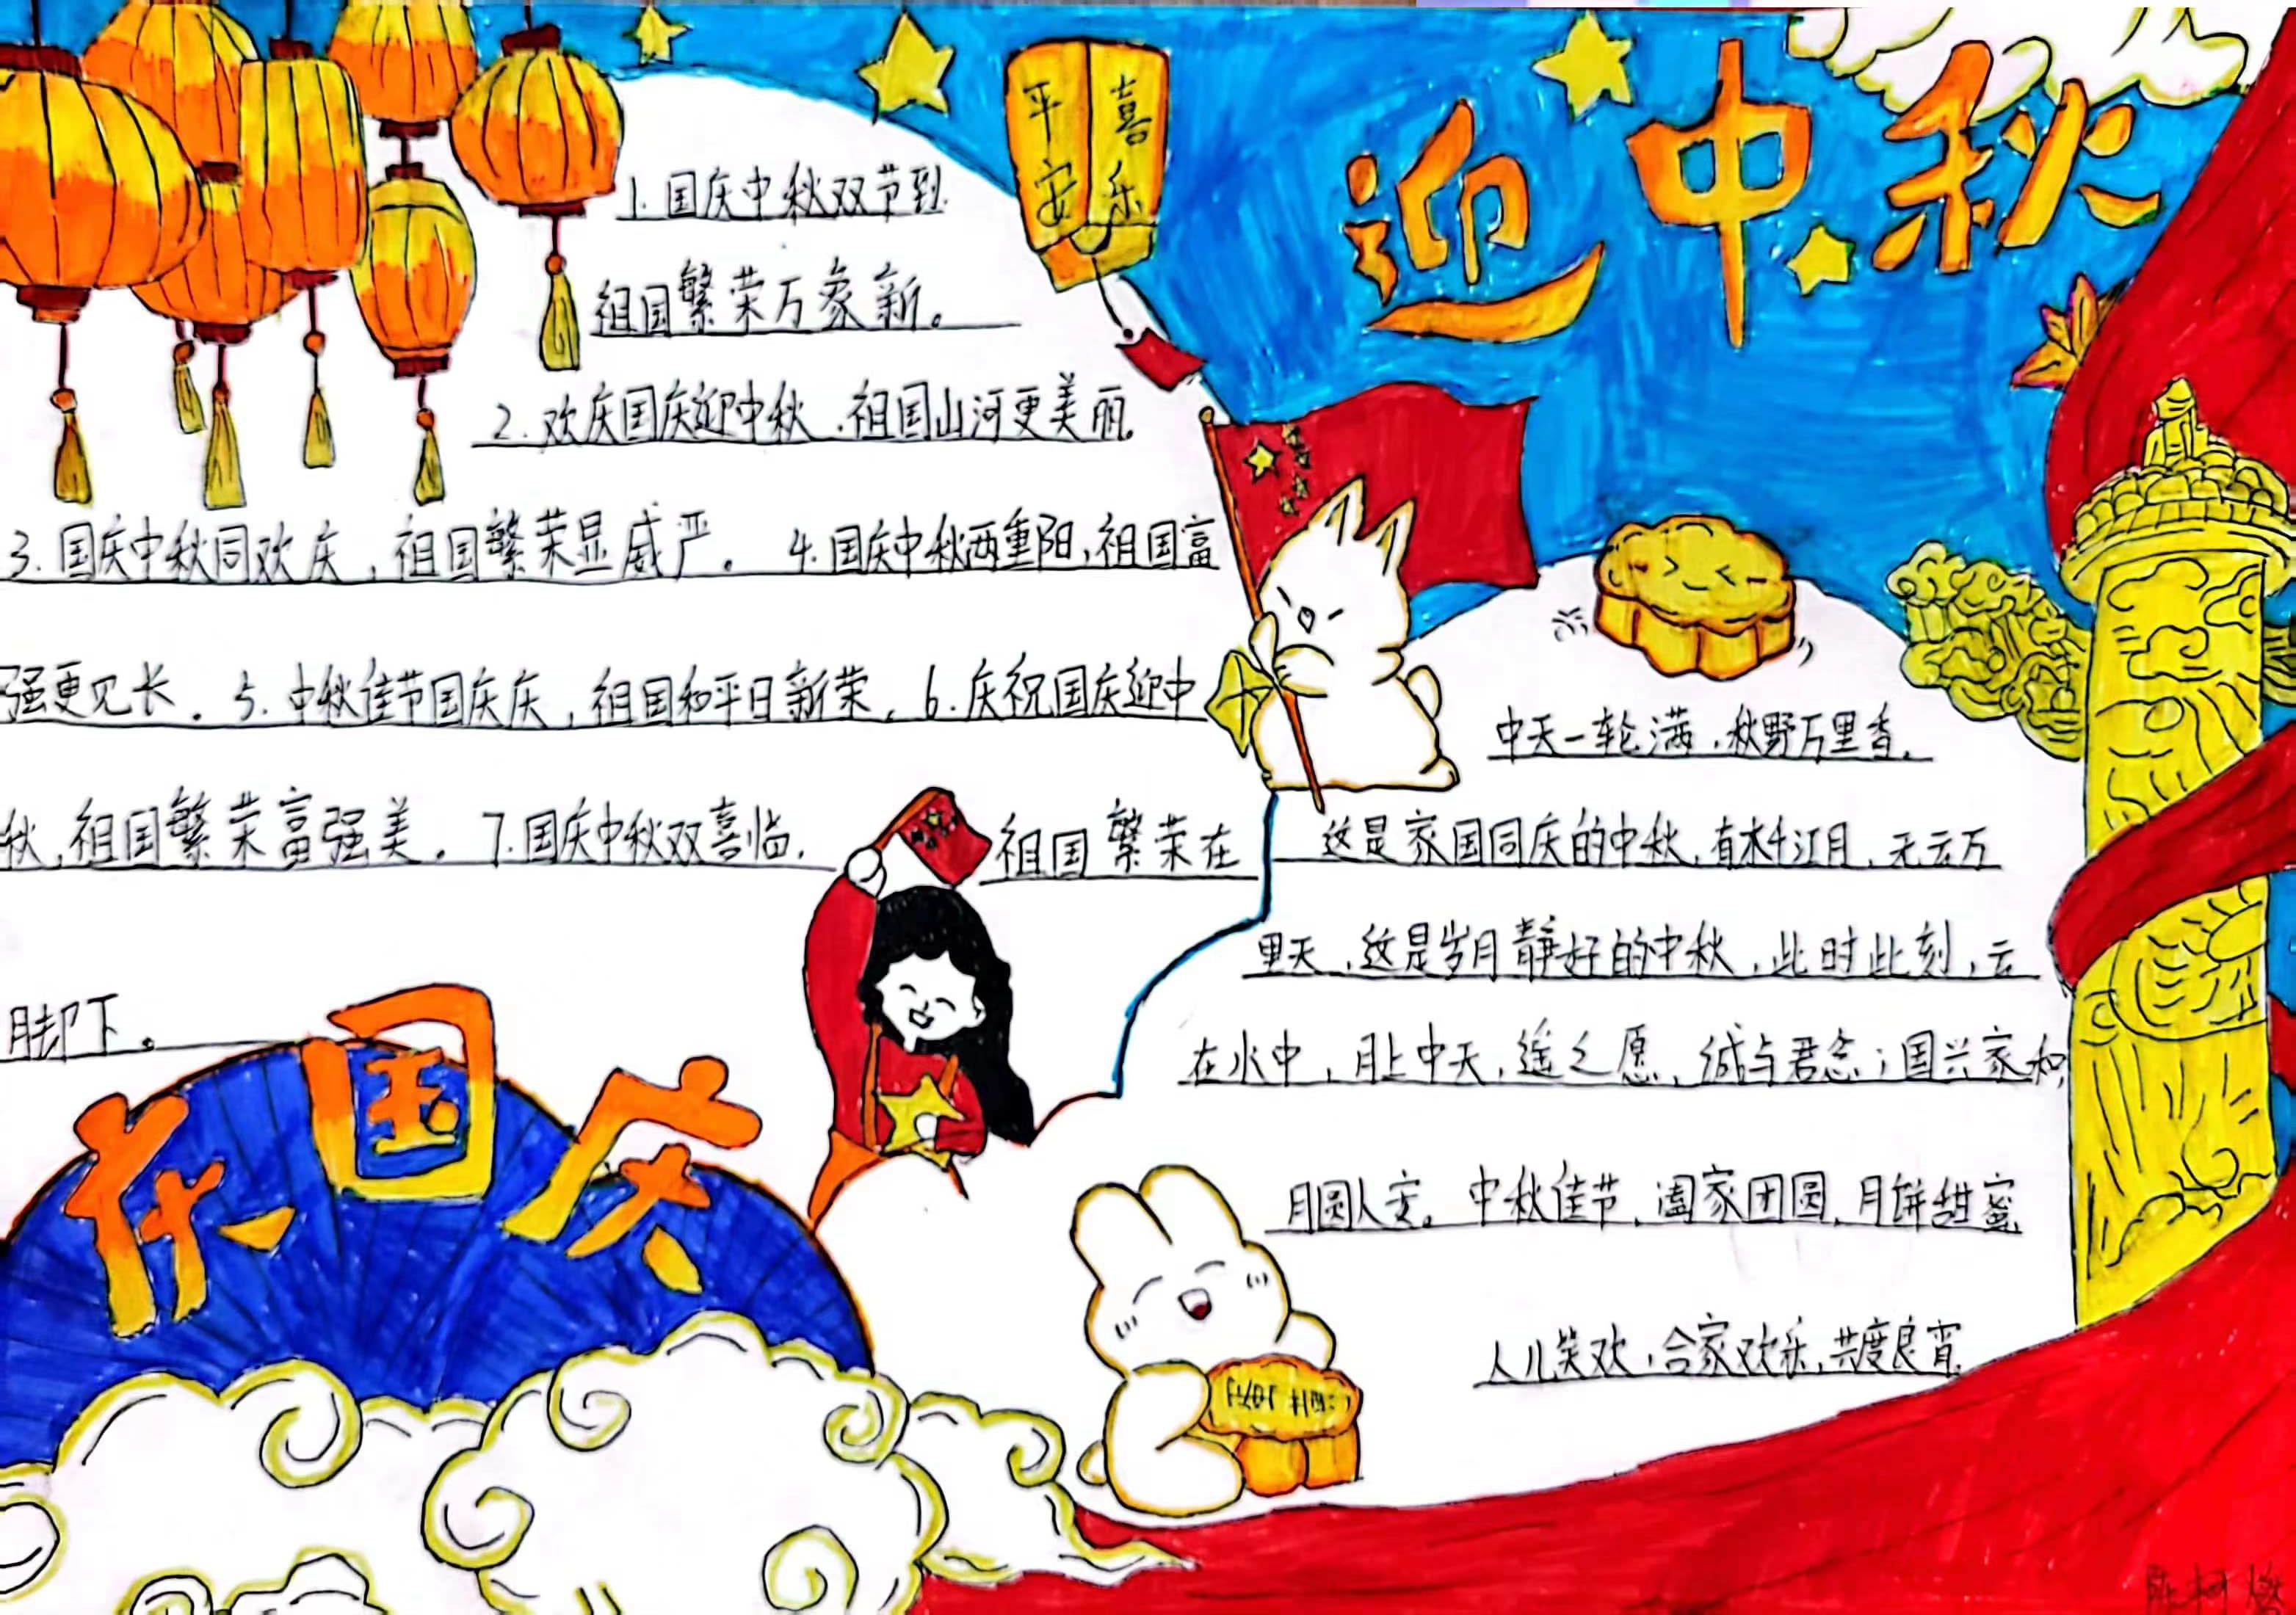 迎中秋
平安
喜乐
1.国庆中秋双节到
祖国繁荣万象新。
2.欢庆国庆迎中秋,祖国山河更美丽。
3.国庆中秋同欢庆,祖国繁荣显威严。 4.国庆中秋两重阳,祖国富
强更见长。5.中秋佳节国庆庆,祖国和平日新荣。6.庆祝国庆迎中
秋,祖国繁荣富强美。7.国庆中秋双喜临,祖国繁荣在
脚下。
庆国庆
中天一轮满,秋野万里香。
这是家国同庆的中秋,有水千江月,无云万
里天,这是岁月静好的中秋,此时此刻,云
在水中,月上中天,遥之愿,诚与君念;国兴家和,
月圆人安。中秋佳节,阖家团圆,月饼甜蜜
人儿笑欢,合家欢乐,共度良宵.